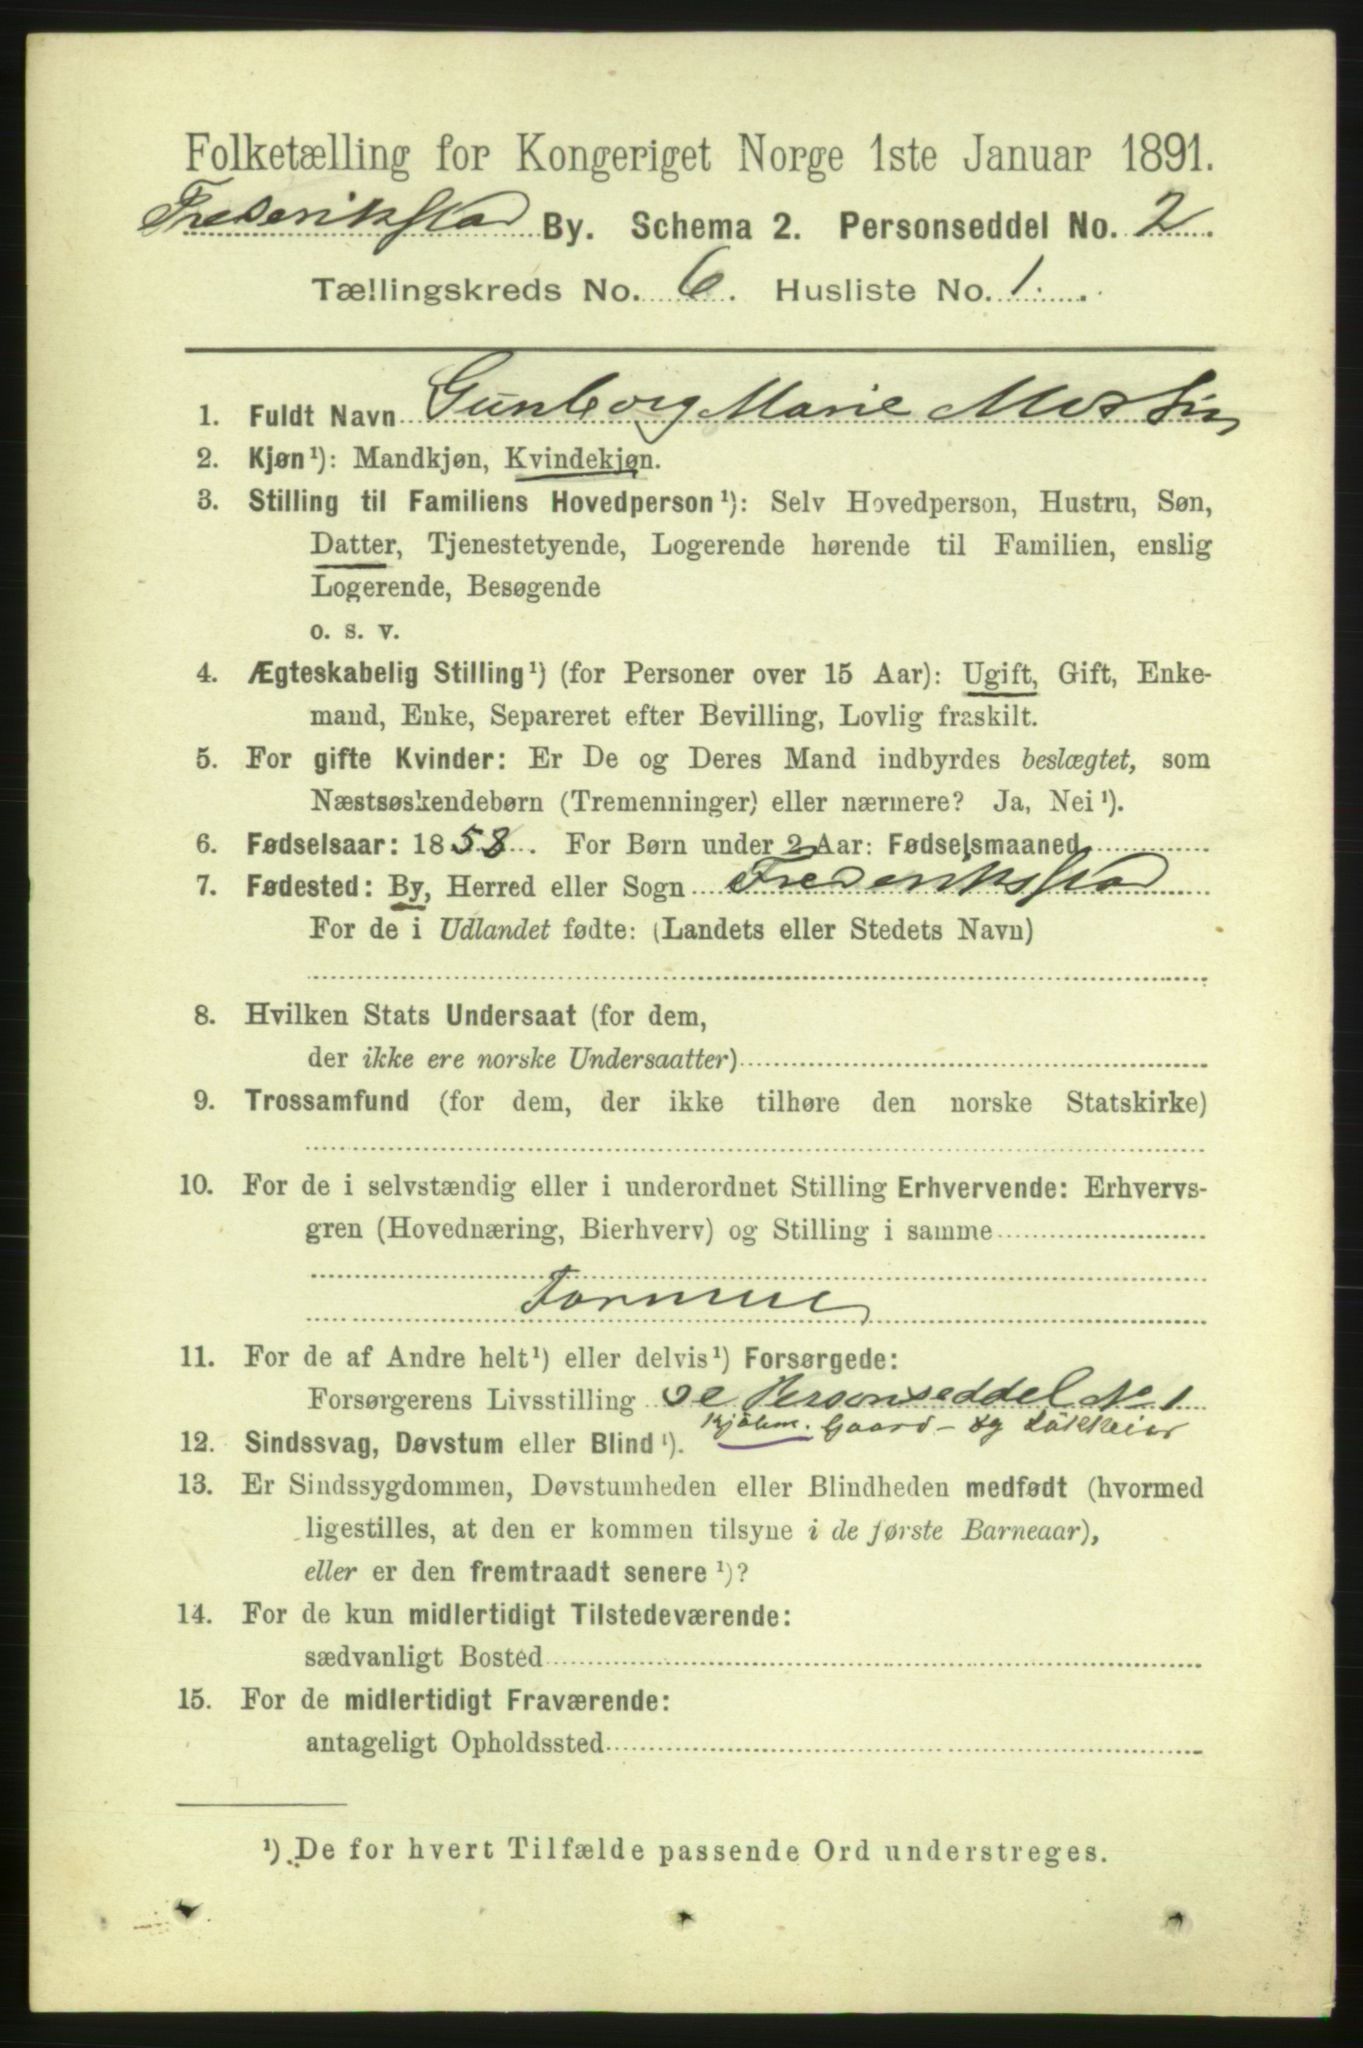 Folketælling for Kongeriget Norge 1ste Januar 1891.
Frederikstad By. Schema 2. Personseddel No. 2.
Tællingskreds No. 6. Husliste No. 1.
1. Fuldt Navn Gunborg Marie
2. Kjøn¹): Mandkjøn, Kvindekjøn.
3. Stilling til Familiens Hovedperson¹): Selv Hovedperson, Hustru, Søn,
Datter, Tjenestetyende, Logerende hørende til Familien, enslig
Logerende, Besøgende
o. s. v.
4. Ægteskabelig Stilling¹) (for Personer over 15 Aar): Ugift, Gift, Enke-
mand, Enke, Separeret efter Bevilling, Lovlig fraskilt.
5. For gifte Kvinder: Er De og Deres Mand indbyrdes beslægtet, som
Næstsøskendebørn (Tremenninger) eller nærmere? Ja, Nei¹).
6. Fødselsaar: 1858. For Børn under 2 Aar: Fødselsmaaned
7. Fødested: By, Herred eller Sogn Frederiksstad
For de i Udlandet fødte: (Landets eller Stedets Navn)
8. Hvilken Stats Undersaat (for dem,
der ikke ere norske Undersaatter)
9. Trossamfund (for dem, der ikke tilhøre den norske Statskirke)
10. For de i selvstændig eller i underordnet Stilling Erhvervende: Erhvervs-
gren (Hovednæring, Bierhverv) og Stilling i samme
Formue
11. For de af Andre helt¹) eller delvis¹) Forsørgede:
Forsørgerens Livsstilling se Personseddel No 1
Kjøbm. Gaard- og
12. Sindssvag, Døvstum eller Blind¹).
13. Er Sindssygdommen, Døvstumheden eller Blindheden medfødt (hvormed
ligestilles, at den er kommen tilsyne i de første Barneaar),
eller er den fremtraadt senere¹)?
14. For de kun midlertidigt Tilstedeværende:
sædvanligt Bosted
15. For de midlertidigt Fraværende:
antageligt Opholdssted
¹) De for hvert Tilfælde passende Ord understreges.